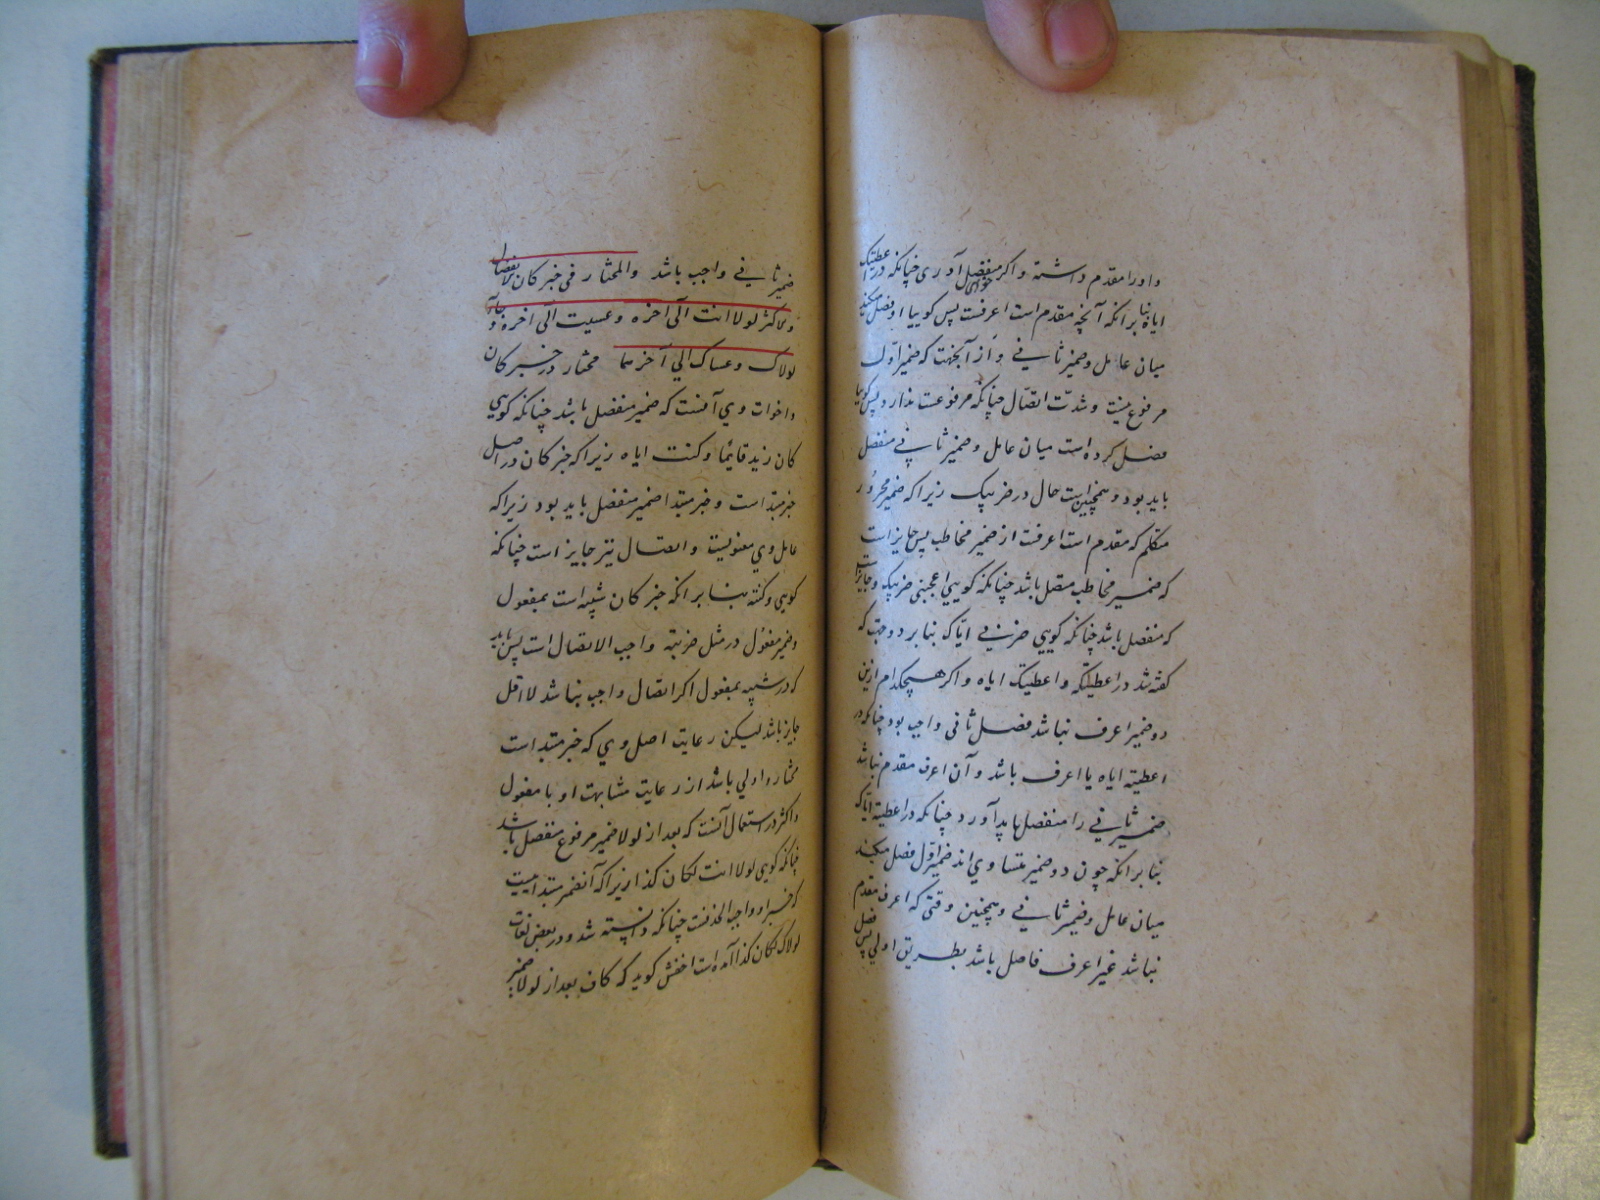 و او را مقدم داشته و اکر منفصل آوری چنانکه در اعطیتک
ایاه بنا برانکه آنچه مقدم است اعرفست پس کوییا او فصل میکند
میان عامل و ضمیر ثانی و از آنجهت که ضمیر اول
مرفوع نیست و شدت اتصال چنانکه مرفوعست ندارد پس کوییا
فصل کرده است میان عامل و ضمیر ثانی پس منفصل
باید بود و همچنین است حال در ضربیک زیرا که ضمیر مجرور
متکلم که مقدم است اعرفست از ضمیر مخاطب پس جایز است
که ضمیر مخاطب متصل باشد چنانکه کویی اعجبنی ضربیک و جایز است
که منفصل باشد چنانکه کویی ضربی ایاک بنا بر دو جهت که
کفته شد در اعطیتکه و اعطیتک ایاه و اکر هیچکدام ازین
دو ضمیر اعرف نباشد فصل ثانی واجب بود چنانکه در
اعطیته ایاه یا اعرف باشد و آن اعرف مقدم نباشد
ضمیر ثانی را منفصل باید آورد چنانکه در اعطیته ایاک
بنا برانکه چون دو ضمیر متساوی اند ضمیر اول فصل میکند
میان عامل و ضمیر ثانی و همچنین وقتی که اعرف مقدم
نباشد غیر اعرف فاصل باشد بطریق اولی پس فصل
ضمیر ثانی واجب باشد والمختار فی خبر کان الانفصال
والاکثر لولا انت الی آخره و عسیت الی آخره و جاء
لولاک و عساک الی آخرهما مختار در خبر کان
و اخوات وی آنست که ضمیر منفصل باشد چنانکه کویی
کان زید قایما و کنت ایاه زیرا که خبر کان در اصل
خبر مبتدا است و خبر مبتدا ضمیر منفصل باید بود زیرا که
عامل وی معنویست و اتصال نیز جایز است چنانکه
کویی و کنته بنا برانکه خبر کان شبیه است بمفعول
و ضمیر مفعول در مثل ضربته واجب الاتصال است پس باید
که در شبیه بمفعول اکر اتصال واجب نباشد لا اقل
جایز باشد لیکن رعایت اصل وی که خبر مبتدا است
مختار و اولی باشد از رعایت مشابهت او با مفعول
و اکثر در استعمال آنست که بعد از لولا ضمیر مرفوع منفصل باشد
چنانکه کویی لولا انت لکان کذا زیرا که آنضمیر مبتدا ایست
که خبر او واجب الحذفست چنانکه دانسته شد و در بعض لغات
لولاک لکان کذا آمده است اخفش کوید که کاف بعد از لولا ضمیر